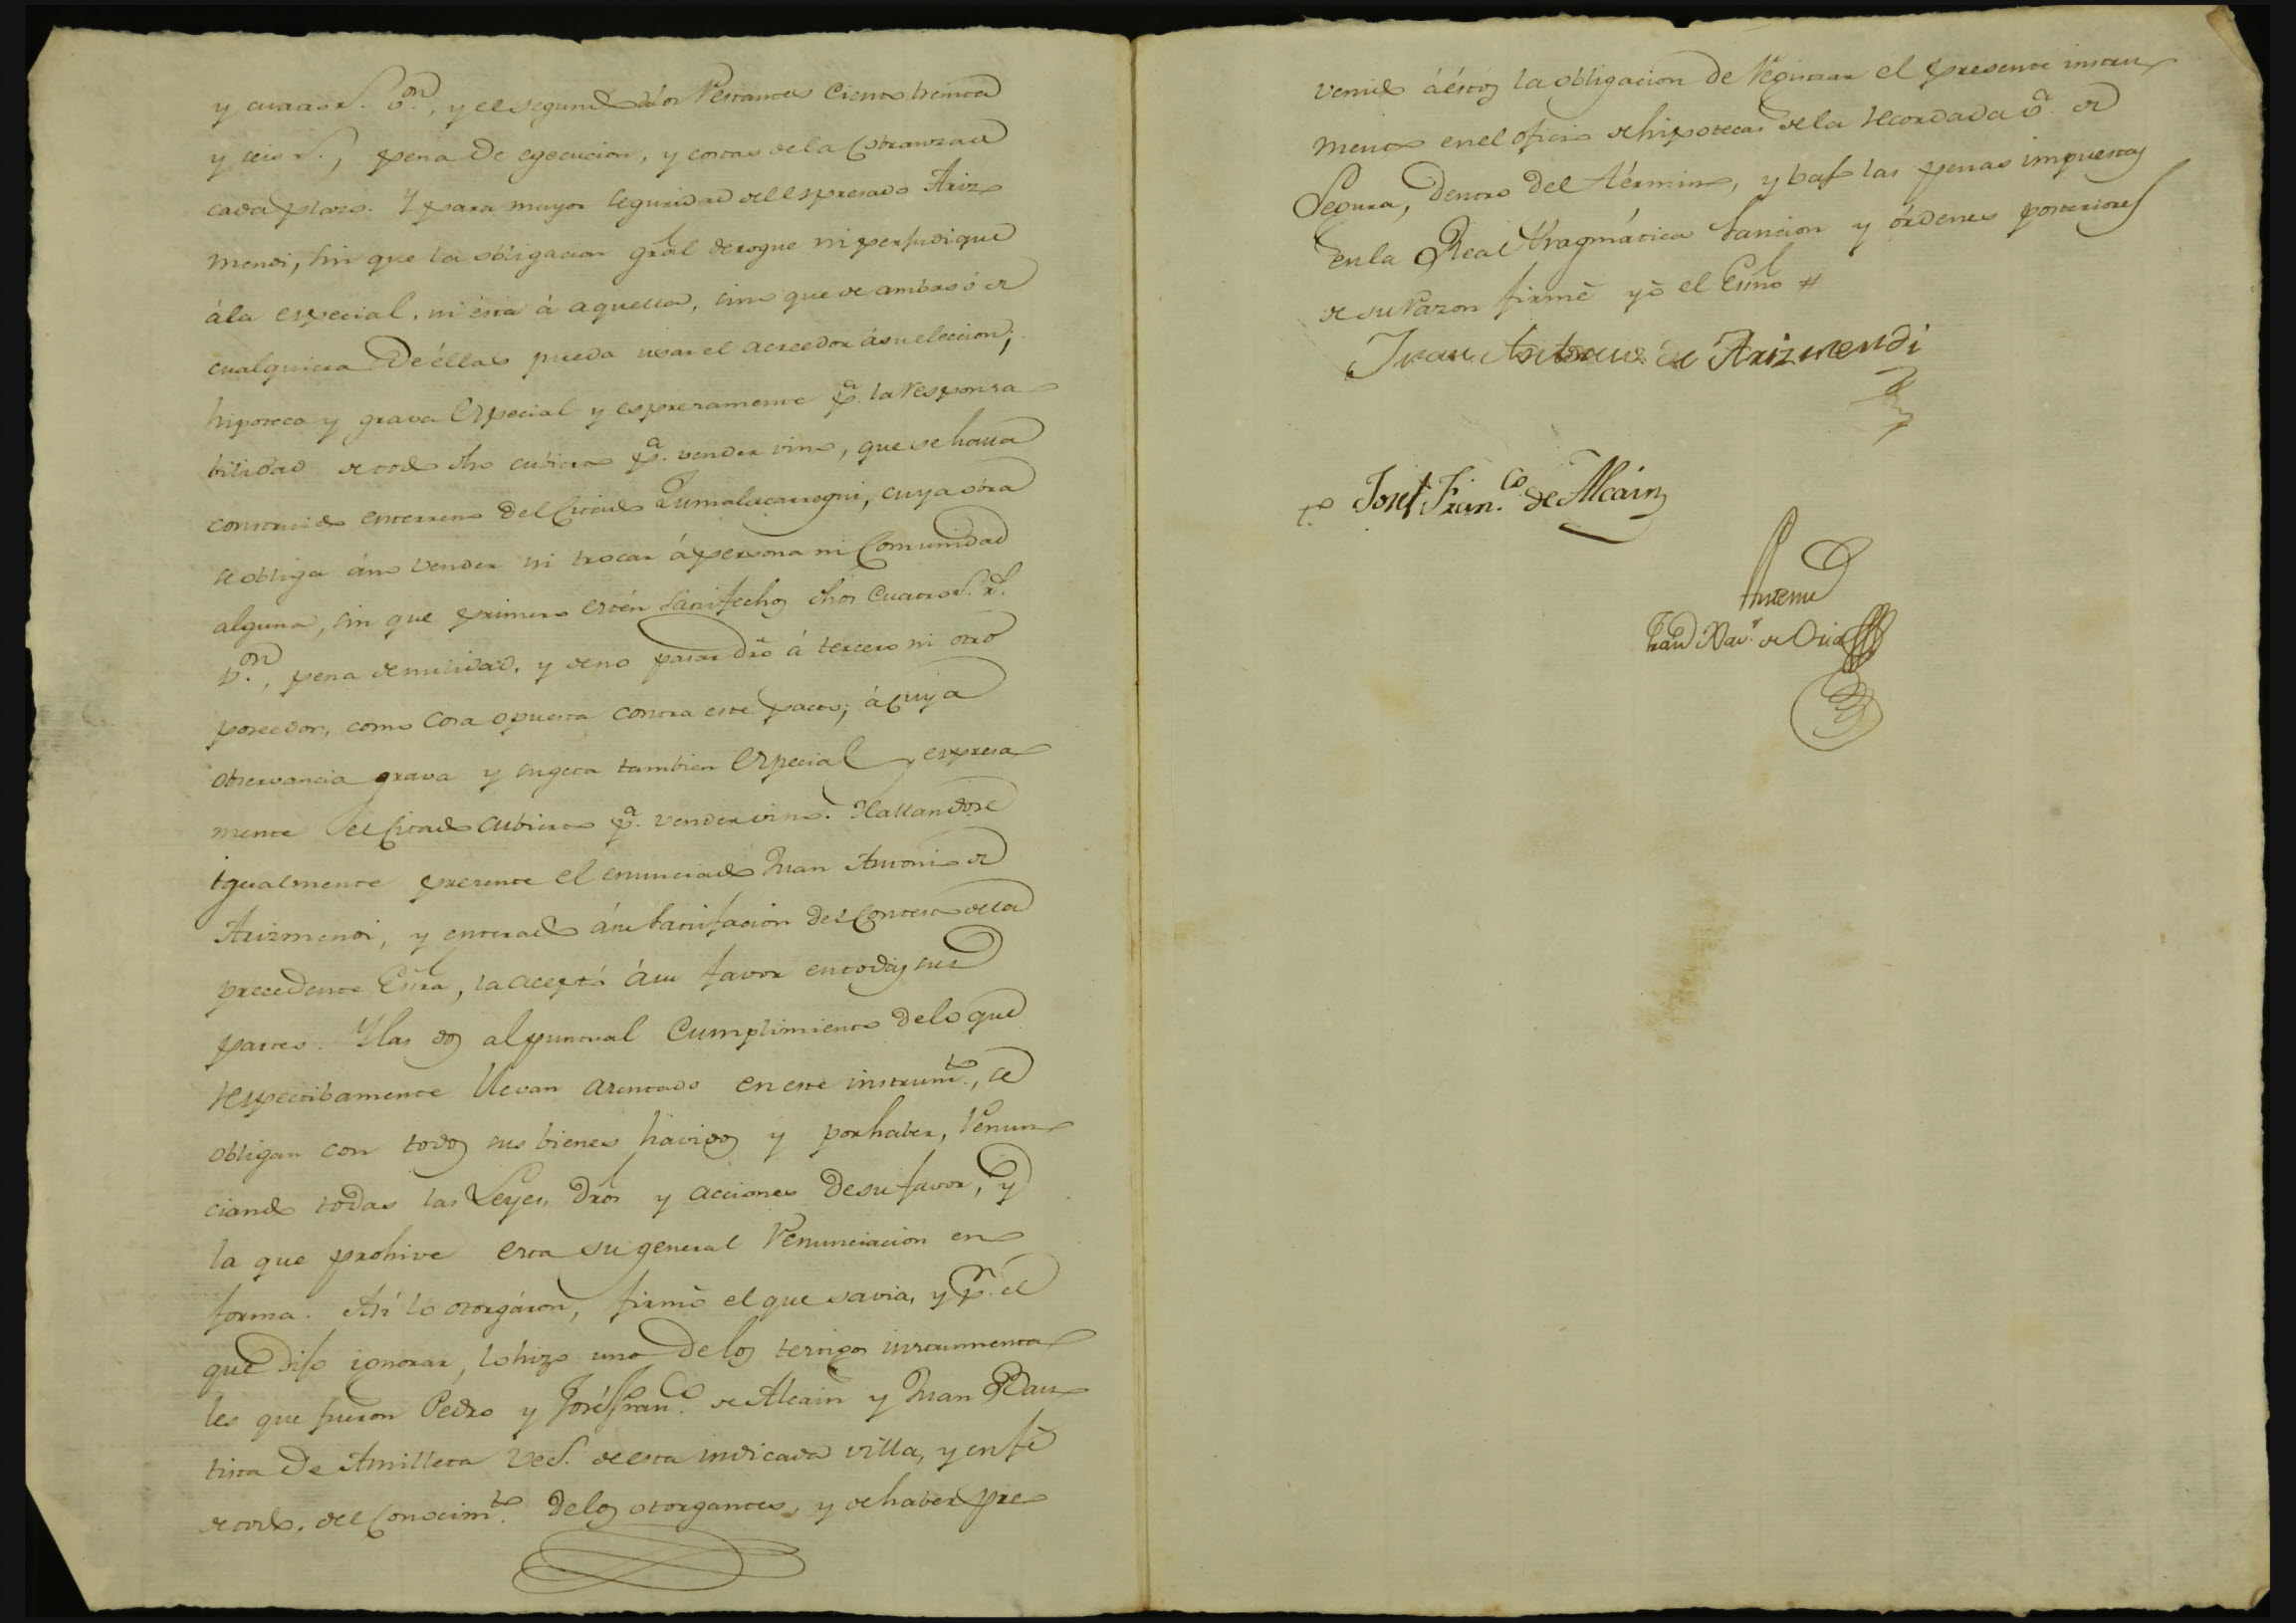 y cuatro r.s v.on, y el segundo de los restantes ciento treinta
y seis r.s, pena de egecucion, y costas de la cobranza de
cada plazo. Y para mayor seguridad del espresado Ariz
mendi, sin que la obligacion gral derogue ni perjudique
á la especial, ni ésta á aquella, sino que de ambas ó de
cualquiera de éllas pueda usar el acreedor á su eleccion;
hipoteca y grava especial y espresamente p.a la responsa
bilidad de todo dho cubierto p.a vender vino, que se halla
construido en terreno del citado Zumalacarregui, cuya obra
se obliga á no vender ni trocar á persona ni Comunidad
alguna, sin que primero estén satisfechos dhos cuatro r.s
v.on, pena de nulidad, y de no pasar dro á tercero ni otro
poseedor, como cosa opuesta contra este pacto; á cuya
observancia grava y sugeta tambien especial y espresa
mente el citado cubierto p.a vender vino. Hallandose
igualmente presente el enunciado Juan Antonio de
Arizmendi, y enterado á su satisfacion del contesto de la
precedente Esra, la aceptó á su favor en todas sus
partes. Y las dos al puntual cumplimiento de lo que
respectibamente llevan asentado en este instrum.to, se
obligan con todos sus bienes havidos y por haber, renun
ciando todas las Leyes, dros y acciones de su favor, y
la que prohive esta su general renunciacion en
forma. Así lo otorgáron, firmó el que savia, y p.r el
que dijo ignorar, lo hizo uno de los testigos instrumenta
les que fueron Pedro y José Fran.co de Alcain y Juan Bau
tista de Amilleta vec.s de esta indicada villa, y en fé
de todo, del conocim.to de los otorgantes, y de haber pre
venido á éstos la obligacion de registrar el presente instru
mento en el oficio de hipotecas de la recordada v.a de
Segura, dentro del término, y bajo las penas impuestas
en la Real Pragmática Sancion y órdenes posteriores
de su razon firmé yó el Esno #
Juan Antonio de Arizmendi
t.o Josef Fran.co de Alcain
Antemi
Xav.r de Oria